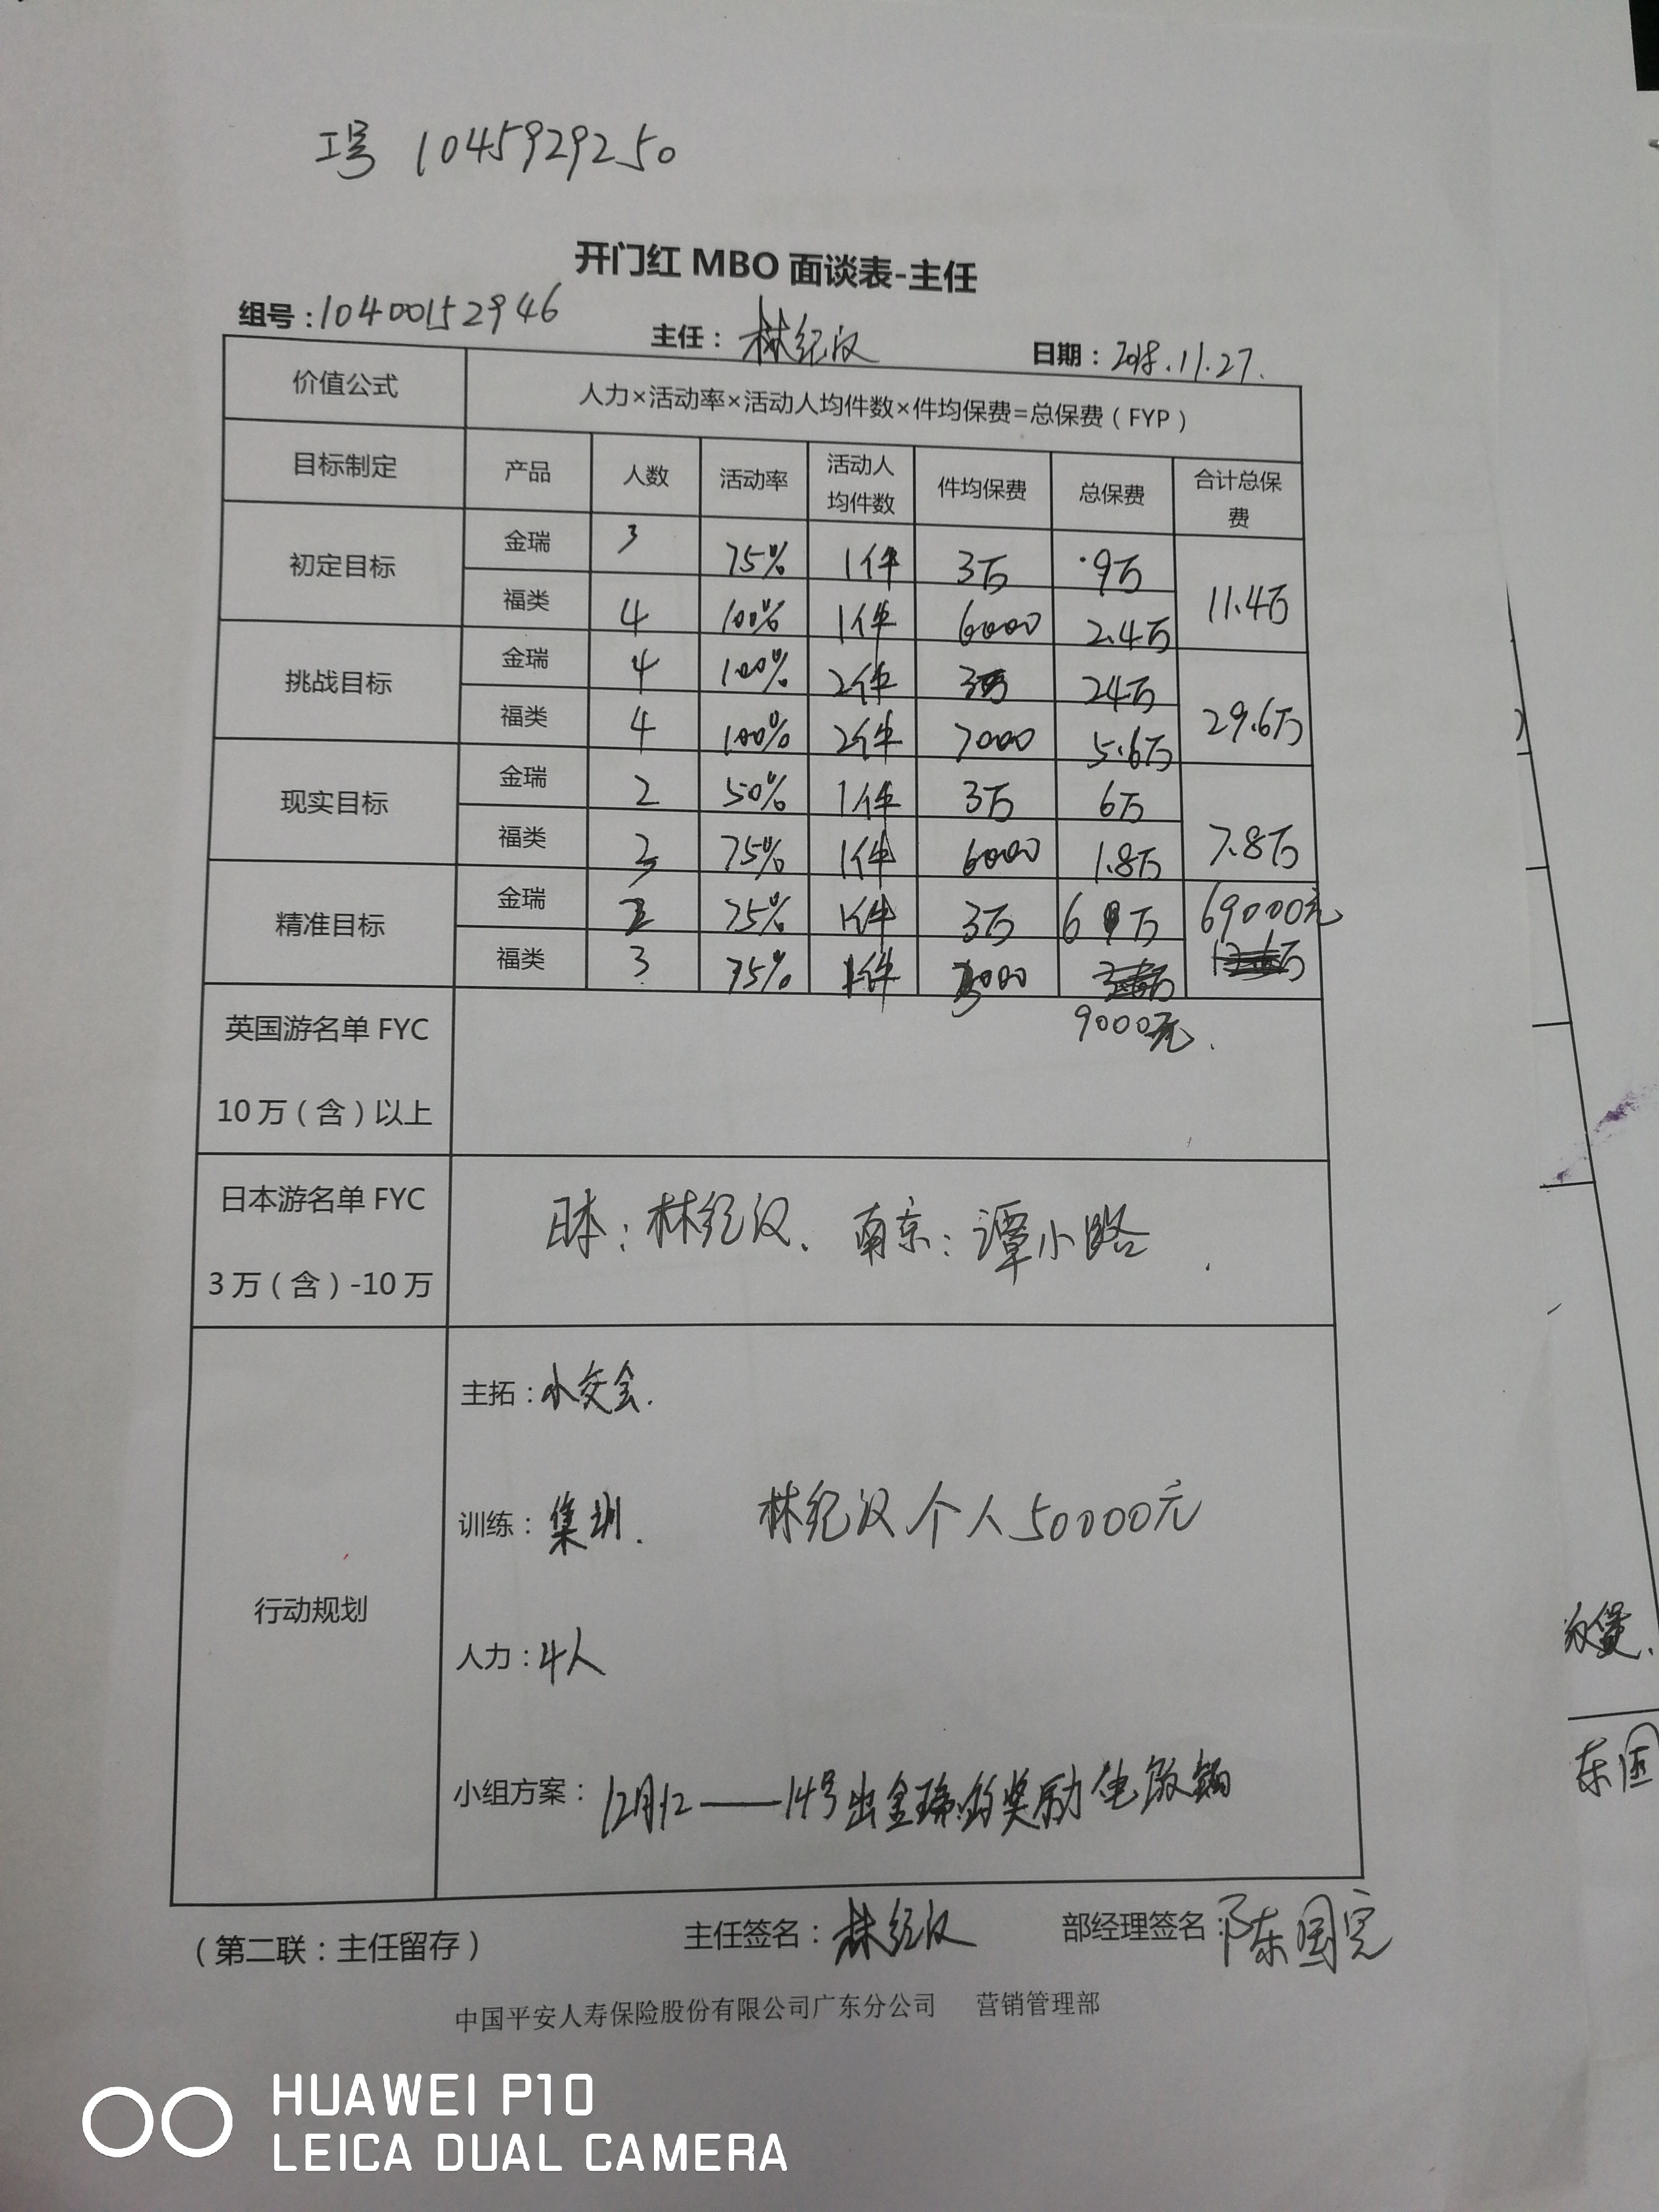 工号 1045929250
开门红 MBO 面谈表-主任
组号：10400152946 主任：林纪汉 日期：2018.11.27.
价值公式 人力×活动率×活动人均件数×件均保费=总保费（FYP）
目标制定 产品 人数 活动率 活动人均件数 件均保费 总保费 合计总保费
初定目标 金瑞 3 75% 1件 3万 9万 11.4万
福类 4 100% 1件 6000 2.4万
挑战目标 金瑞 4 100% 2件 3万 24万 29.6万
福类 4 100% 2件 7000 5.6万
现实目标 金瑞 2 50% 1件 3万 6万 7.8万
福类 3 75% 1件 6000 1.8万
精准目标 金瑞 2 75% 1件 3万 6万 69000元
福类 3 75% 1件 3000
9000元.
英国游名单 FYC
10 万（含）以上
日本游名单 FYC
3 万（含）-10 万
日本：林纪汉、南京：谭小路.
行动规划
主拓：小交会.
训练：集训. 林纪汉个人50000元
人力：4人
小组方案：12月12——14号出金瑞的奖励电饭锅
（第二联：主任留存） 主任签名：林纪汉 部经理签名：陈国完
中国平安人寿保险股份有限公司广东分公司 营销管理部
东国
HUAWEI P10
LEICA DUAL CAMERA